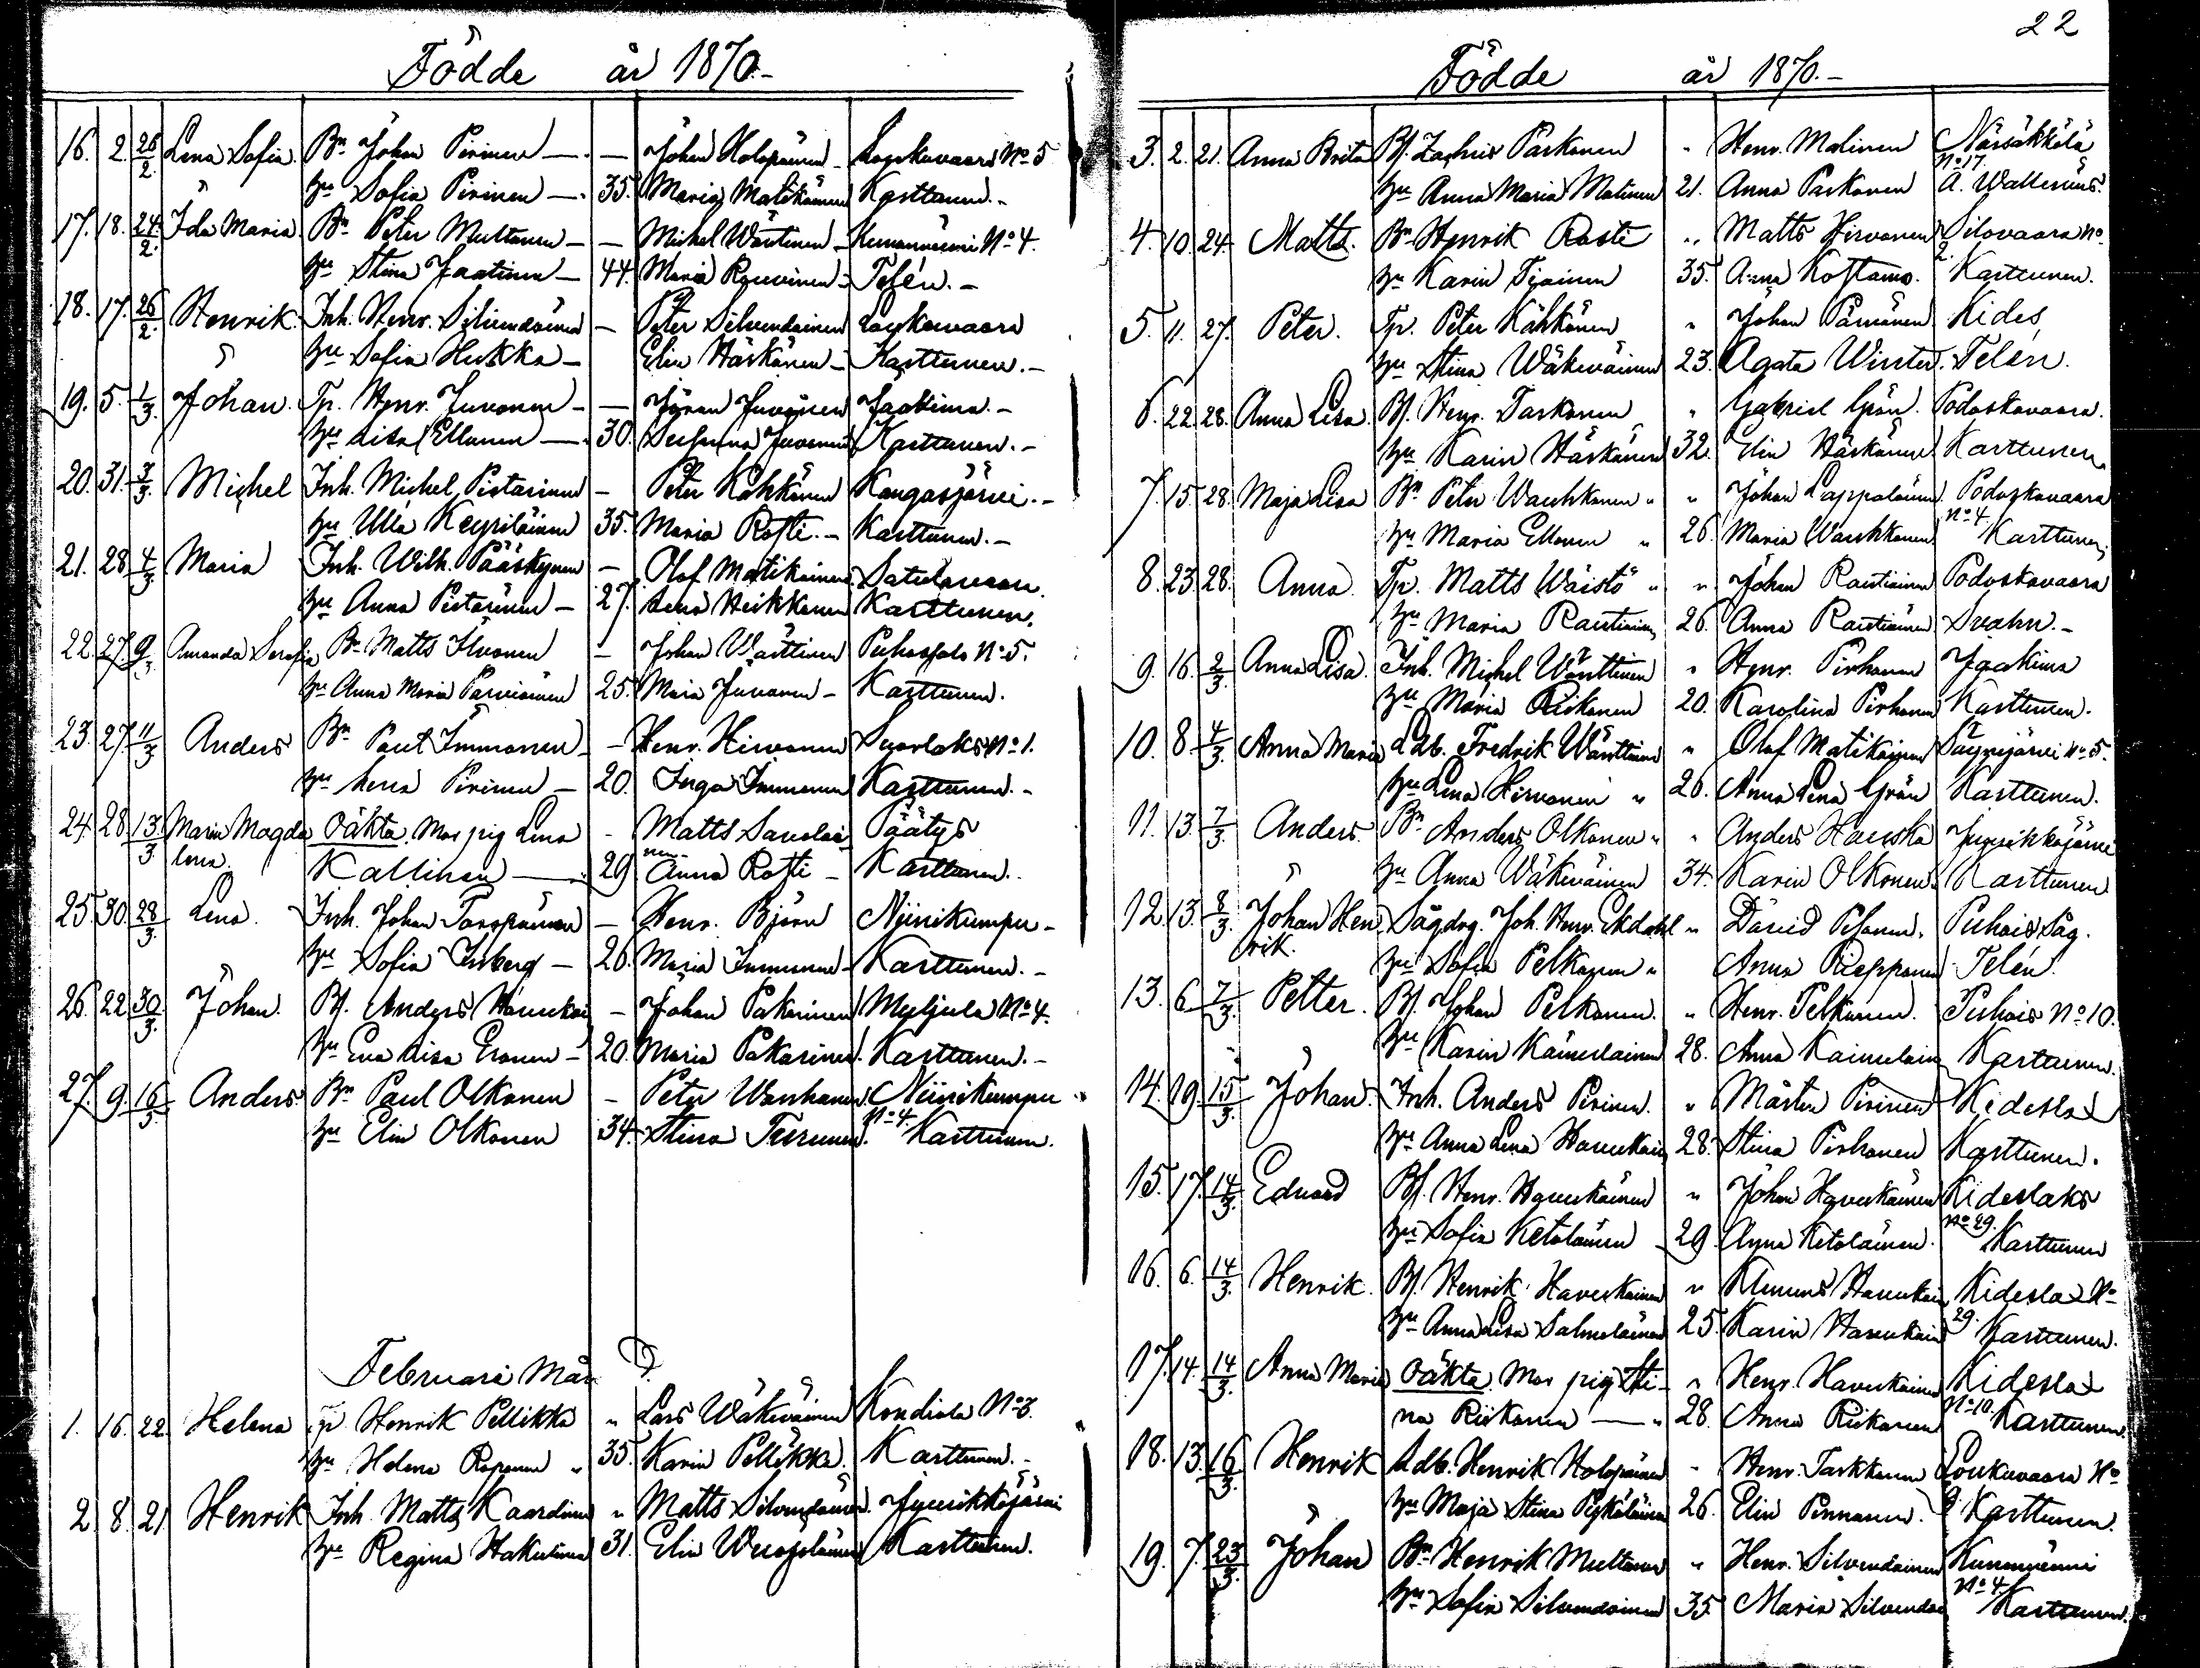 Födde år 1870.-
16. 2. 26/2. Lena Sofia. Bn Johan Pirinen — — Johan Holopainen Loukuvaara No 5
hu Sofia Pirinen — 35. Maria Matikainen Karttunen.-
17. 18. 24/2. Ida Maria. Bn Peter Multanen — — Michel Wänttinen Kunonniemi No 4.
hu Stina Jaatinen — 44. Maria Rouvinen Telén.-
18. 17. 26/2 Henrik. Inh. Henr. Silvendoinen — Peter Silvendoinen Loukuvaara
hu Sofia Hukka — Elin Häskönen — Karttunen.-
19. 5. 1/3. Johan. Tp. Henr. Juvonen — — Göran Juvonen Jaakima.-
hu Lisa Ellonen — 30. Juvonen Karttunen.-
20. 31. 3/3. Michel Inh. Michel Pistarinen — Peter Kähkönen Kangasjärvi.-
hu Ulla Keyriläinen 35. Maria Rosti.- Karttunen.-
21. 28. 4/3 Maria Inh. Wilh. Pääskynen — Olof Matikainen Satulavaara
hu Anna Pistarinen — 27. Lena Heikkonen Karttunen.
22. 27. 9/3. Amanda Serafia Bn Matts Ilvonen — Johan Wänttinen Puhossalo No 5.
hu Anna Maria Parviainen 25. Maria Juvonen — Karttunen.
23. 27. 11/3 Anders Bn Paul Immonen — Henr. Hirvonen Suorlaks No 1.
hu Lena Pirinen — 20. Inga Immonen Karttunen.-
24. 28. 13/3. Maria Magda Oäkta Mor pig Lena — Matts Savolai Päätys
lena. Kallinen — 29 nen Anna Rosti — Karttunen.
25. 30. 28/3. Lena. Inh. Johan — Henr. Björn Niinikumpu —
hu Sofia Inberg — 26. Maria Immonen Karttunen.-
26. 22. 30/3. Johan. Bf. Anders Haverkain — Johan Pakarinen Muljula No 4.
hu Eva Lisa Eronen — 20. Maria Pakarinen. Karttunen.-
27. 9. 16/3. Anders Bn Paul Olkonen — Peter Wanhanen. Niinikumpu
hu Elin Olkonen 34. Stina Turunen. No 4. Karttunen.
Februari Mån
1. 16. 22. Helena Tp. Henrik Pellikka " Lars Wäkeväinen Kondiola No 8.
hu Helena Ropponen " 35. Karin Pellikka. Karttunen.-
2 8. 21 Henrik Inh. Matts Kaardinen " Matts Silvendoinen. Jyrsikköjärvi
hu Regina Hakulinen 31. Elin Karttunen.
22
Födde år 1870.-
3. 2. 21. Anna Brita Bf. Zachris Paskonen " Henr. Malinen Närsäkkälä
hu Anna Maria Matinen 21. Anna Paskonen No 17. A. Wallenius.
4. 10. 24. Matts. Bn Henrik Rosti " Matts Hirvonen Silovaara No
hu Karin Tiainen 35. Anna Kostamo. 2. Karttunen.
5. 11. 27. Peter. Tp. Peter Kähkönen " Johan Parvianen Kides
hu Stina Wäkeväinen 23. Agata Winter. Telén.
6. 22. 28. Anna Lisa. Bf. Henr. Taskonen " Gabriel Grön. Podoskavaara.
hu Karin Häskönen 32. Elin Häskönen Karttunen.
7. 15. 28. Maja Lisa Bn Peter Wauhkonen " " Johan Lappalainen Podoskavaara
hu Maria Ellonen " 26. Maria Wauhkonen No 4. Karttunen.
8. 23. 28. Anna. Tp. Matts Wäistö " " Johan Rautiainen Podoskavaara
hu Maria Rautiainen 26. Anna Rautiainen Svahn.-
9. 16. 2/3. Anna Lisa. Inh. Michel Wänttinen " Henr. Pirhonen Jaakima
hu Maria Riikonen 20. Karolina Pirhonen Karttunen.
10. 8. 4/3. Anna Maria Adb. Fredrik Wänttinen " Olof Matikainen Säynejärvi No 5.
hu Lena Hirvonen " 26. Anna Lena Grön Karttunen.
11. 13. 7/3. Anders. Bn Anders Olkonen " " Anders Hauska Jyrsikköjärvi
hu Anna Wäkeväinen 34. Karin Olkonen. Karttunen
12. 13. 8/3. Johan Hen Sågdrg. Joh. Henr. Ekdahl " David Pesonen. Puhois Såg.
rik. hu Sofia Pelkonen " Anna Reponen Telén.
13. 6. 7/3. Petter. Bf. Johan Pelkonen. " Henr. Pelkonen. Puhois No 10.
hu Karin Kaimulainen 28. Anna Kaimulain Karttunen.
14. 19. 15/3. Johan. Inh. Anders Pirinen. " Mårten Pirinen Kideslax
hu Anna Lena Haverkain 28. Stina Pirhonen Karttunen.
15. 17. 14/3. Eduard Bf. Henr. Haverkainen " Johan Haverkainen Kideslaks
hu Sofia Ketolainen 29. Anna Ketolainen. No 29. Karttunen
16. 6. 14/3. Henrik. Bf. Henrik Haverkainen " Klemens Haverkain Kideslax No
hu Anna Lisa Salmelainen 25. Karin Haverkain 29. Karttunen.
17. 14. 14/3. Anna Maria Oäkta. Mor pig Sti- " Henr. Haverkainen Kideslax
na Riikonen — " 28. Anna Riikonen No 10. Karttunen.
18. 13. 16/3. Henrik Adb. Henrik Holopainen " Henr. Taskkonen Loukuvaara No
hu Maja Stina Pyköläinen 26. Elin Pennanen. 9 Karttunen.
19. 7. 23/3. Johan Bn Henrik Multanen " Henr. Silvendoinen Kunonniemi
hu Sofia Silvendoinen 35. Maria Silvendoi No 4. Karttunen.